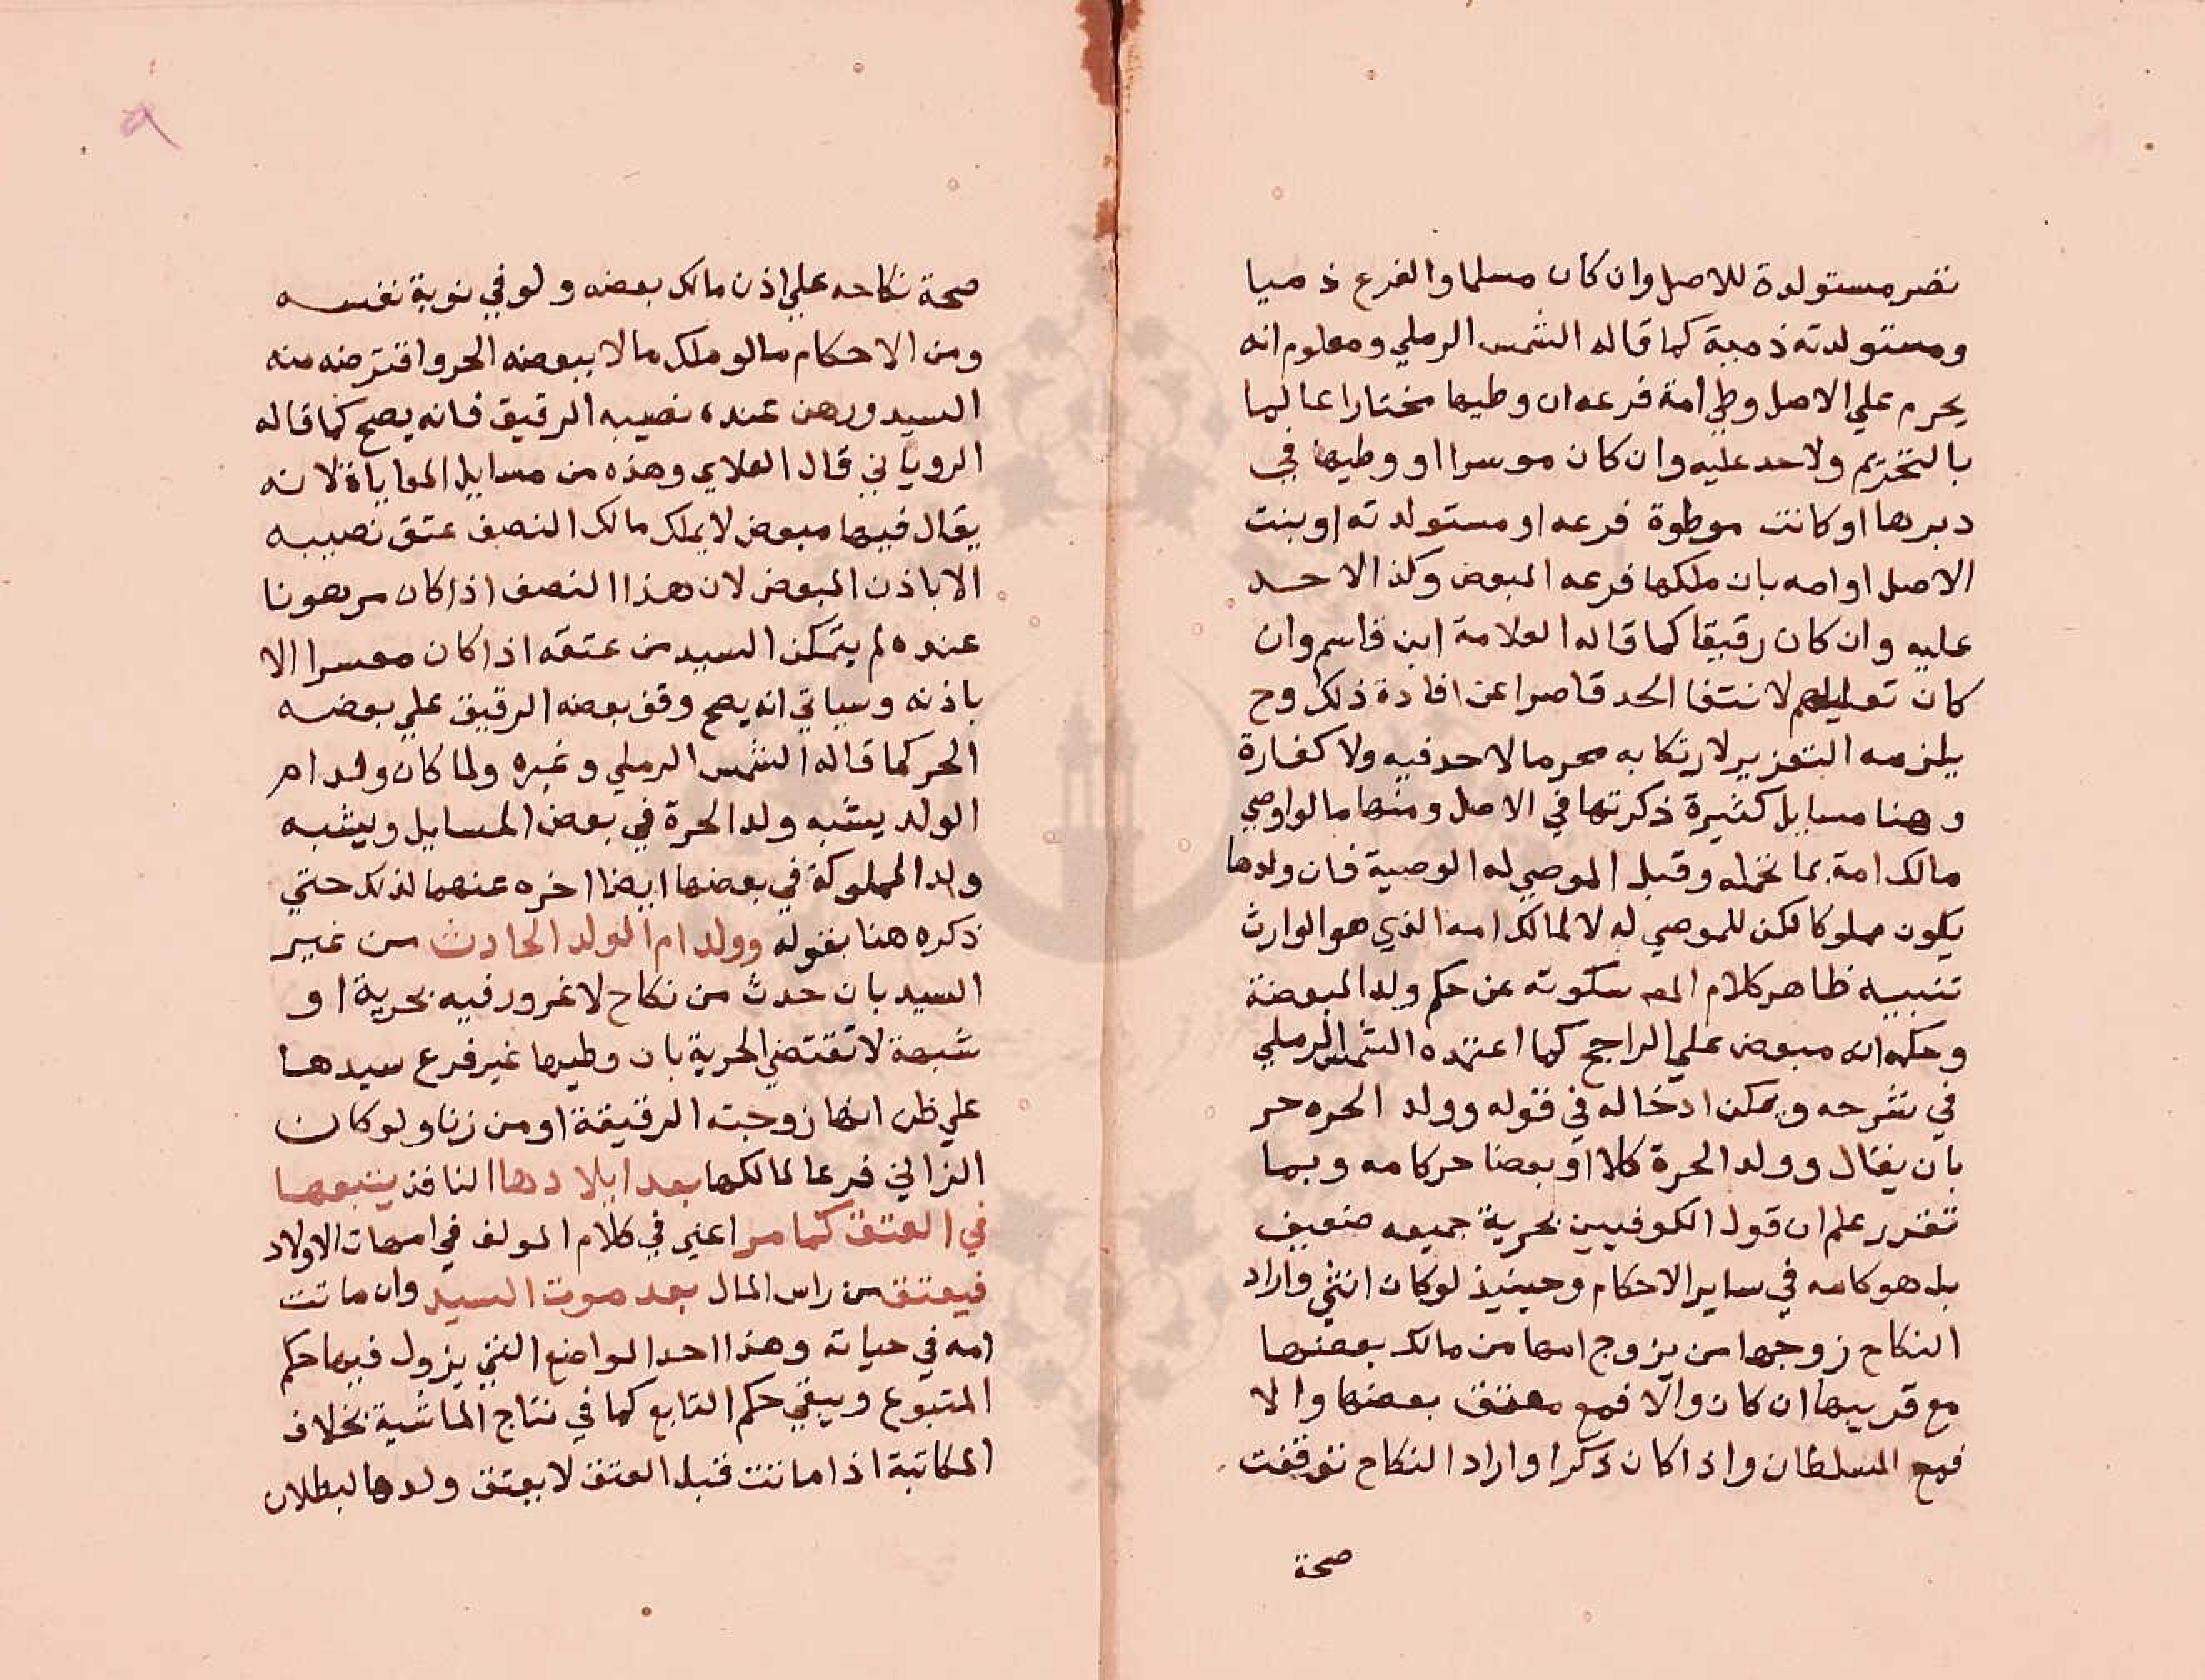 تصر مستولدة للاصل وان كان مسلما والفرع ذميا
ومستولدته ذمية كما قاله الشمس الرملي ومعلوم انه
يحرم علي الاصل وطي امة فرعه ان وطيها مختارا عالما
بالتحريم ولا حد عليه وان كان موسرا او وطيها في
دبرها او كانت موطوة فرعه او مستولدته او بنت
الاصل او امه بان ملكها فرعه المبعض وكذا لا حد
عليه وان كان رقيقا كما قاله العلامة ابن قاسم وان
كان تعليلهم لانتفا الحد قاصرا عن افادة ذلك وح
يلزمه التعزير لارتكابه محرما لا حد فيه ولا كفارة
وهنا مسايل كثيرة ذكرتها في الاصل ومنها ما لو اوصي
مالك امة بما تحمله وقبل الموصي له الوصية فان ولدها
يكون مملوكا لكن للموصي له لا لمالك امه الذي هو الوارث
تنبيه ظاهر كلام المص سكوته عن حكم ولد المبعضة
وحكمه انه مبعض علي الراجح كما اعتمده الشمس الرملي
في شرحه ويمكن ادخاله في قوله وولد الحره حر
بان يقال وولد الحرة كلا او بعضا حر كامه وبما
تقرر علم ان قول الكوفيين بحرية جميعه ضعيف
بل هو كامه في ساير الاحكام وحينيذ لو كان انثي واراد
النكاح زوجها من يزوج امها من مالك بعضها
مع قريبها ان كان والا فمع معتق بعضها والا
فمع السلطان واذا كان ذكرا واراد النكاح توقفت
صحة
صحة نكاحه علي اذن مالك بعضه ولو في نوبة نفسه
ومن الاحكام ما لو ملك مالا ببعضه الحر واقترضه منه
السيد ورهن عنده نصيبه الرقيق فانه يصح كما قاله
الروياني قال العلاي وهذه من مسايل المعاياة لانه
يقال فيها مبعض لا يملك مالك النصف عتق نصيبه
الا باذن المبعض لان هذا النصف اذا كان مرهونا
عنده لم يتمكن السيد من عتقه اذا كان معسرا الا
باذنه وسياتي انه يصح وقف بعضه الرقيق علي بعضه
الحر كما قاله الشمس الرملي وغيره ولما كان ولد ام
الولد يشبه ولد الحرة في بعض المسايل ويشبه
ولد المملوكة في بعضها ايضا اخره عنهما لذلك حتي
ذكره هنا بقوله وولد ام الولد الحادث من غير
السيد بان حدث من نكاح لا غرور فيه بحرية او
شبهة لا تقتضي الحرية بان وطيها غير فرع سيدها
علي ظن انها زوجته الرقيقة او من زنا ولو كان
الزاني فرعا لمالكها بعد ايلادها النافذ يتبعها
في العتق كما مر اعني في كلام المولف في امهات الاولاد
فيعتق من راس المال بعد موت السيد وان ماتت
امه في حياته وهذا احد المواضع التي يزول فيها حكم
المتبوع ويبقي حكم التابع كما في نتاج الماشية بخلاف
المكاتبة اذا ماتت قبل العتق لا يعتق ولدها لبطلان